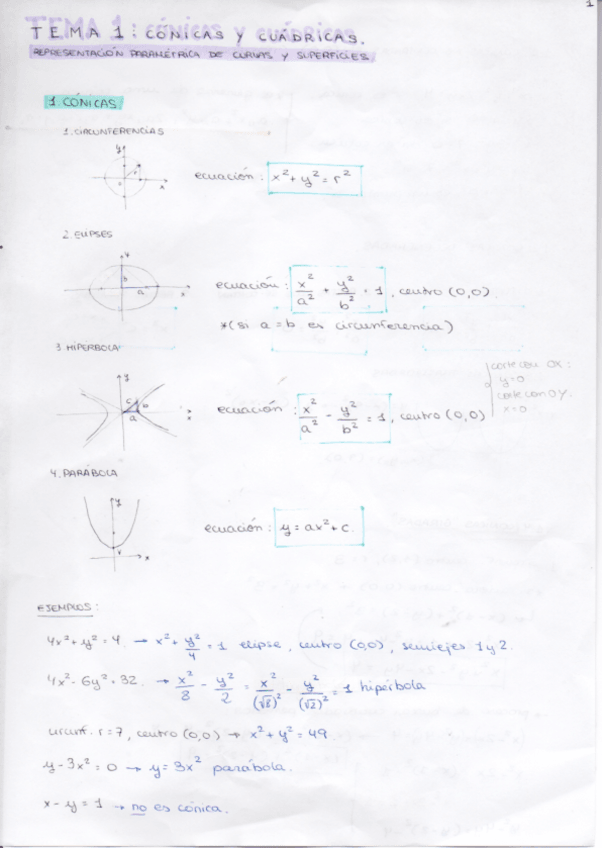 1
TEMA 1: CÓNICAS Y CUÁDRICAS.
REPRESENTACIÓN PARAMÉTRICA DE CURVAS Y SUPERFICIES
1. CÓNICAS.
1. CIRCUNFERENCIAS
y
r
x
ecuación: x² + y² = r²
2. ELIPSES
y
b
a
x
ecuación: x²/a² + y²/b² = 1, centro (0,0)
*(si a = b es circunferencia)
3. HIPÉRBOLA
y
c
b
a
x
ecuación: x²/a² - y²/b² = 1, centro (0,0)
corte con OX:
y=0
corte con OY:
x=0
4. PARÁBOLA
y
v
x
ecuación: y = ax² + c.
EJEMPLOS:
4x² + y² = 4. → x² + y²/4 = 1 elipse, centro (0,0), semiejes 1 y 2.
4x² - 6y² = 32. → x²/8 - y²/2 = x²/(√8)² - y²/(√2)² = 1 hipérbola
circunf. r=7, centro (0,0) → x² + y² = 49
y - 3x² = 0 → y = 3x² parábola.
x - y = 1 → no es cónica.